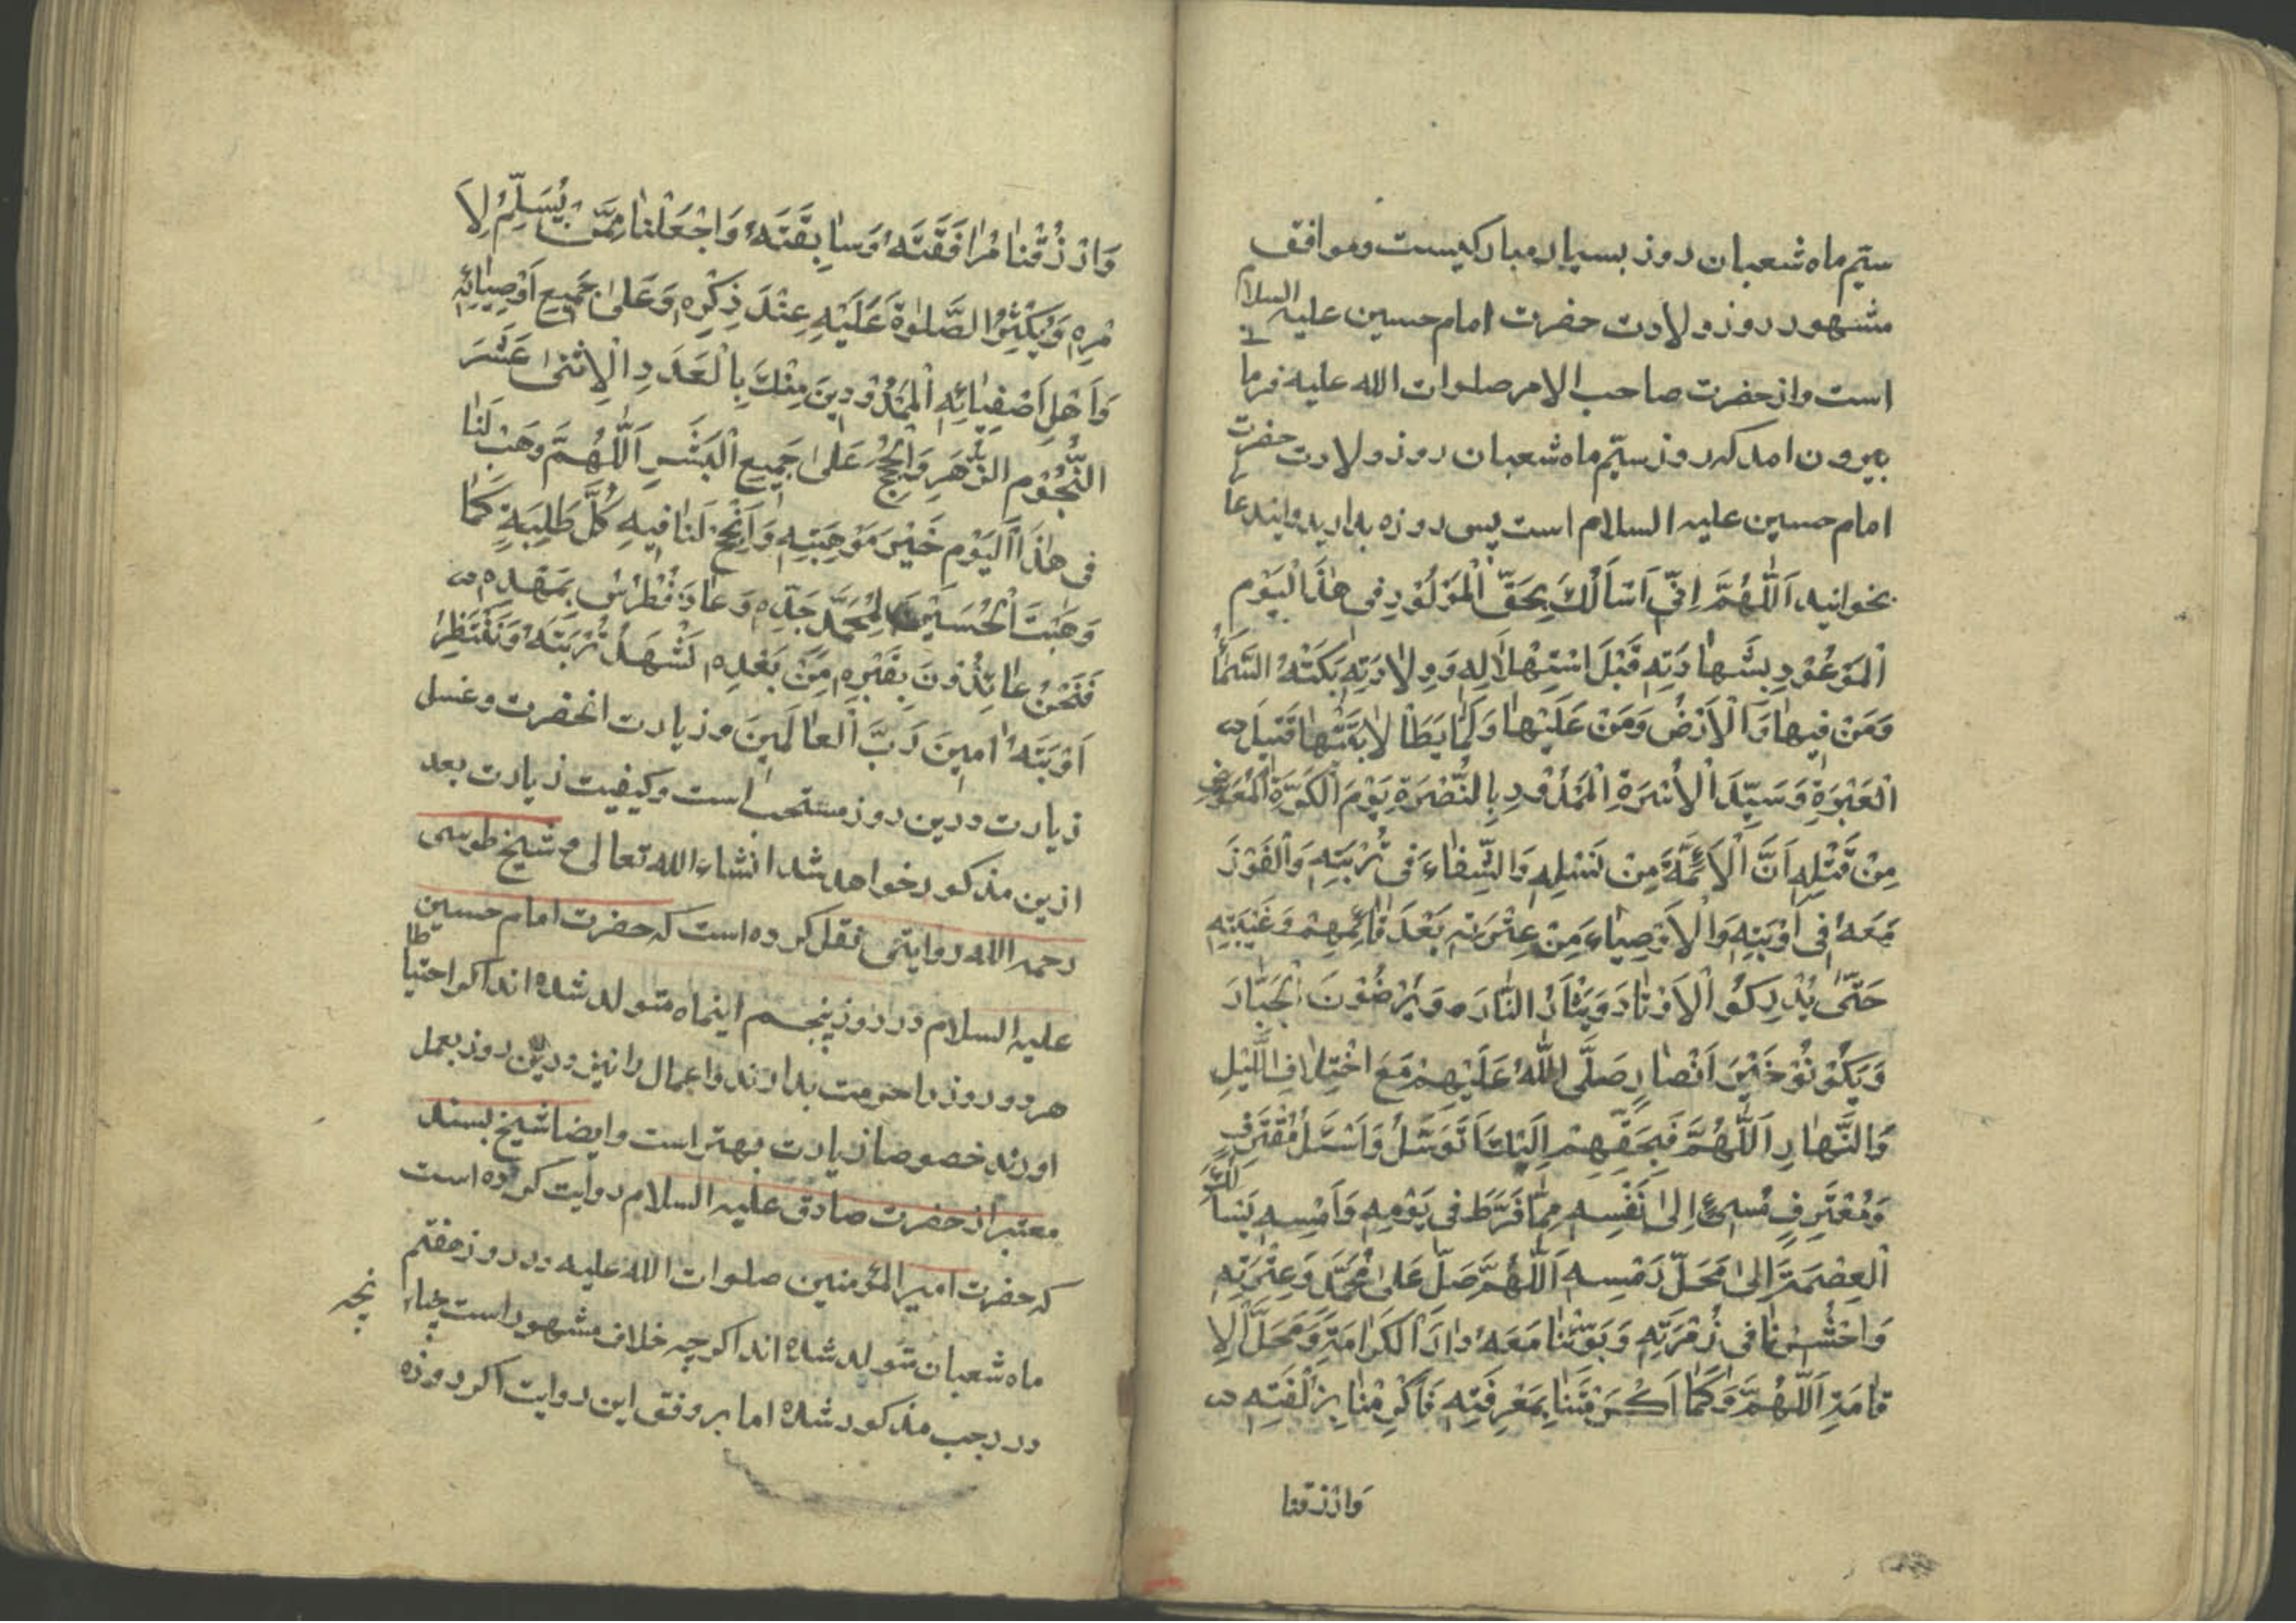 سیّم ماه شعبان روز بسیار مبارکیست و موافق
مشهور روز ولادت حضرت امام حسین علیه السلام
است و از حضرت صاحب الامر صلوات الله علیه فرما
بیرون امد که روز سیّم ماه شعبان روز ولادت حضرت
امام حسین علیه السلام است پس روزه بدارید و ایندعا
بخوانید اَللّٰهُمَّ اِنّی اَسْاَلُكَ بِحَقِّ الْمَوْلُوْدِ فی هٰذَا الْیَوْمِ
اَلْمَوْعُوْدِ بِشَهادَتِهِ قَبْلَ اسْتِهْلالِهِ وَ وِلادَتِهِ بَکَتْهُ السَّماۤءُ
وَمَنْ فیها وَالْاَرْضُ وَمَنْ عَلَیْها وَلَمّا یَطَاْ لابَتَیْها قَتیلَ
الْعَبْرَةِ وَسَیِّدَ الْاُسْرَةِ الْمَمْدُوْدِ بِالنُّصْرَةِ یَوْمَ الْکَرَّةِ الْمُعَوَّضِ
مِنْ قَتْلِهِ اَنَّ الْاَئِمَّةَ مِنْ نَسْلِهِ وَالشِّفاۤءَ فی تُرْبَتِهِ وَالْفَوْزَ
مَعَهُ فی اَوْبَتِهِ وَالْاَوْصِیاۤءَ مِنْ عِتْرَتِهِ بَعْدَ قاۤئِمِهِمْ وَغَیْبَتِهِ
حَتّٰی یُدْرِکُوْا الْاَوْتادَ وَیَثْاَرُ الثّارَ وَیَرْضُوْنَ الْجَبّارَ
وَیَکُوْنُوْ خَیْرَ اَنْصارٍ صَلَّی اللّٰهُ عَلَیْهِمْ مَعَ اخْتِلافِ اللَّیْلِ
وَالنَّهارِ اَللّٰهُمَّ فَبِحَقِّهِمْ اِلَیْكَ اَتَوَسَّلُ وَاَسْئَلُ مُقْتَرِفٍ
وَمُعْتَرِفٍ مُسیۤئٍ اِلٰی نَفْسِهِ مِمّا فَرَّطَ فی یَوْمِهِ وَاَمْسِهِ یَسْاَلُكَ
الْعِصْمَةَ اِلٰی مَحَلِّ رَمْسِهِ اَللّٰهُمَّ صَلِّ عَلٰی مُحَمَّدٍ وَعِتْرَتِهِ
وَاحْشُرْنا فی زُمْرَتِهِ وَبَوِّئْنا مَعَهُ دارَ الْکَرامَةِ وَمَحَلَّ الْاِ
قامَةِ اَللّٰهُمَّ وَکَما اَکْرَمْتَنا بِمَعْرِفَتِهِ فَاَکْرِمْنا بِزُلْفَتِهِ
وَارْزُقْنا
وَارْزُقْنا مُرافَقَتَهُ وَسابِقَتَهُ وَاجْعَلْنا مِمَّنْ یُسَلِّمُ لِاَ
مْرِهِ وَیُکْثِرُ الصَّلٰوةَ عَلَیْهِ عِنْدَ ذِکْرِهِ وَعَلٰی جَمیعِ اَوْصِیاۤئِهِ
وَاَهْلِ اَصْفِیاۤئِهِ الْمَمْدُوْدینَ مِنْكَ بِالْعَدَدِ الْاِثْنٰی عَشَرَ
النُّجُوْمِ الزُّهَرِ وَالْحُجَجِ عَلٰی جَمیعِ الْبَشَرِ اَللّٰهُمَّ وَهَبْ لَنا
فی هٰذَا الْیَوْمِ خَیْرَ مَوْهِبَتِهِ وَاَنْجِحْ لَنا فیهِ کُلَّ طَلِبَةٍ کَما
وَهَبْتَ الْحُسَیْنَ لِمُحَمَّدٍ جَدِّهِ وَعاذَ فُطْرُسُ بِمَهْدِهِ
فَنَحْنُ عاۤئِذُوْنَ بِقَبْرِهِ مِنْ بَعْدِهِ نَشْهَدُ تُرْبَتَهُ وَنَنْتَظِرُ
اَوْبَتَهُ امینَ رَبَّ الْعالَمینَ و زیارت انحضرت و غسل
زیارت درین روز مستحب است و کیفیت زیارت بعد
ازین مذکور خواهد شد انشاء الله تعالی م شیخ طوسی
رحمه الله روایتی نقل کرده است که حضرت امام حسین
علیه السلام در روز پنجم اینماه متولد شده اند اکر احتیاطا
هر دو روز را حرمت بدارند و اعمال را نیز درین روز بعمل
اورند خصوصا زیارت بهتر است و ایضا شیخ بسند
معتبر از حضرت صادق علیه السلام روایت کرده است
که حضرت امیر المؤمنین صلوات الله علیه در روز هفتم
ماه شعبان متولد شده اند اکرچه خلاف مشهور است چنانچه
در رجب مذکور شده اما بر وفق این روایت اکر روزه